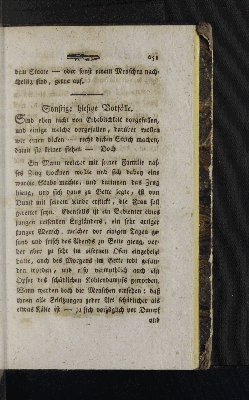 dem Staate — oder sonst einem Menschen nach-
theilig sind, genau auf.
Sonstige hiesige Vorfälle.
Sind eben nicht von Erheblichkeit vorgefallen,
und einige welche vorgefallen, darüber wollen
wir einen dicken — recht dicken Strich machen,
dann sie keiner sieht. — Doch
Ein Mann welcher mit seiner Familie naß-
ses Zeug trocknen wollte und sich dabey eine
warme Stube machte, und darinnen das Zeug
hieng, und sich ganz zu Bette legte, ist vom
Dunst mit seinem Kinde erstickt, die Frau soll
gerettet seyn. Ebenfalls ist ein Bedienter eines
jungen reisenden Engländers, ein sehr artiger
junger Mensch, welcher vor einigen Tagen ge-
sund und frisch des Abends zu Bette gieng, vor-
her aber zu sehr im eisernen Ofen eingeheizt
hatte, auch des Morgens im Bette todt gefun-
den worden, und also vermuthlich auch ein
Opfer des schädlichen Kohlendampfs geworden.
Wann werden doch die Menschen einsehen: daß
wenn alle Erhitzungen jeder Art schädlicher als
etwas Kälte ist — ja sich vorzüglich vor Dampf
und